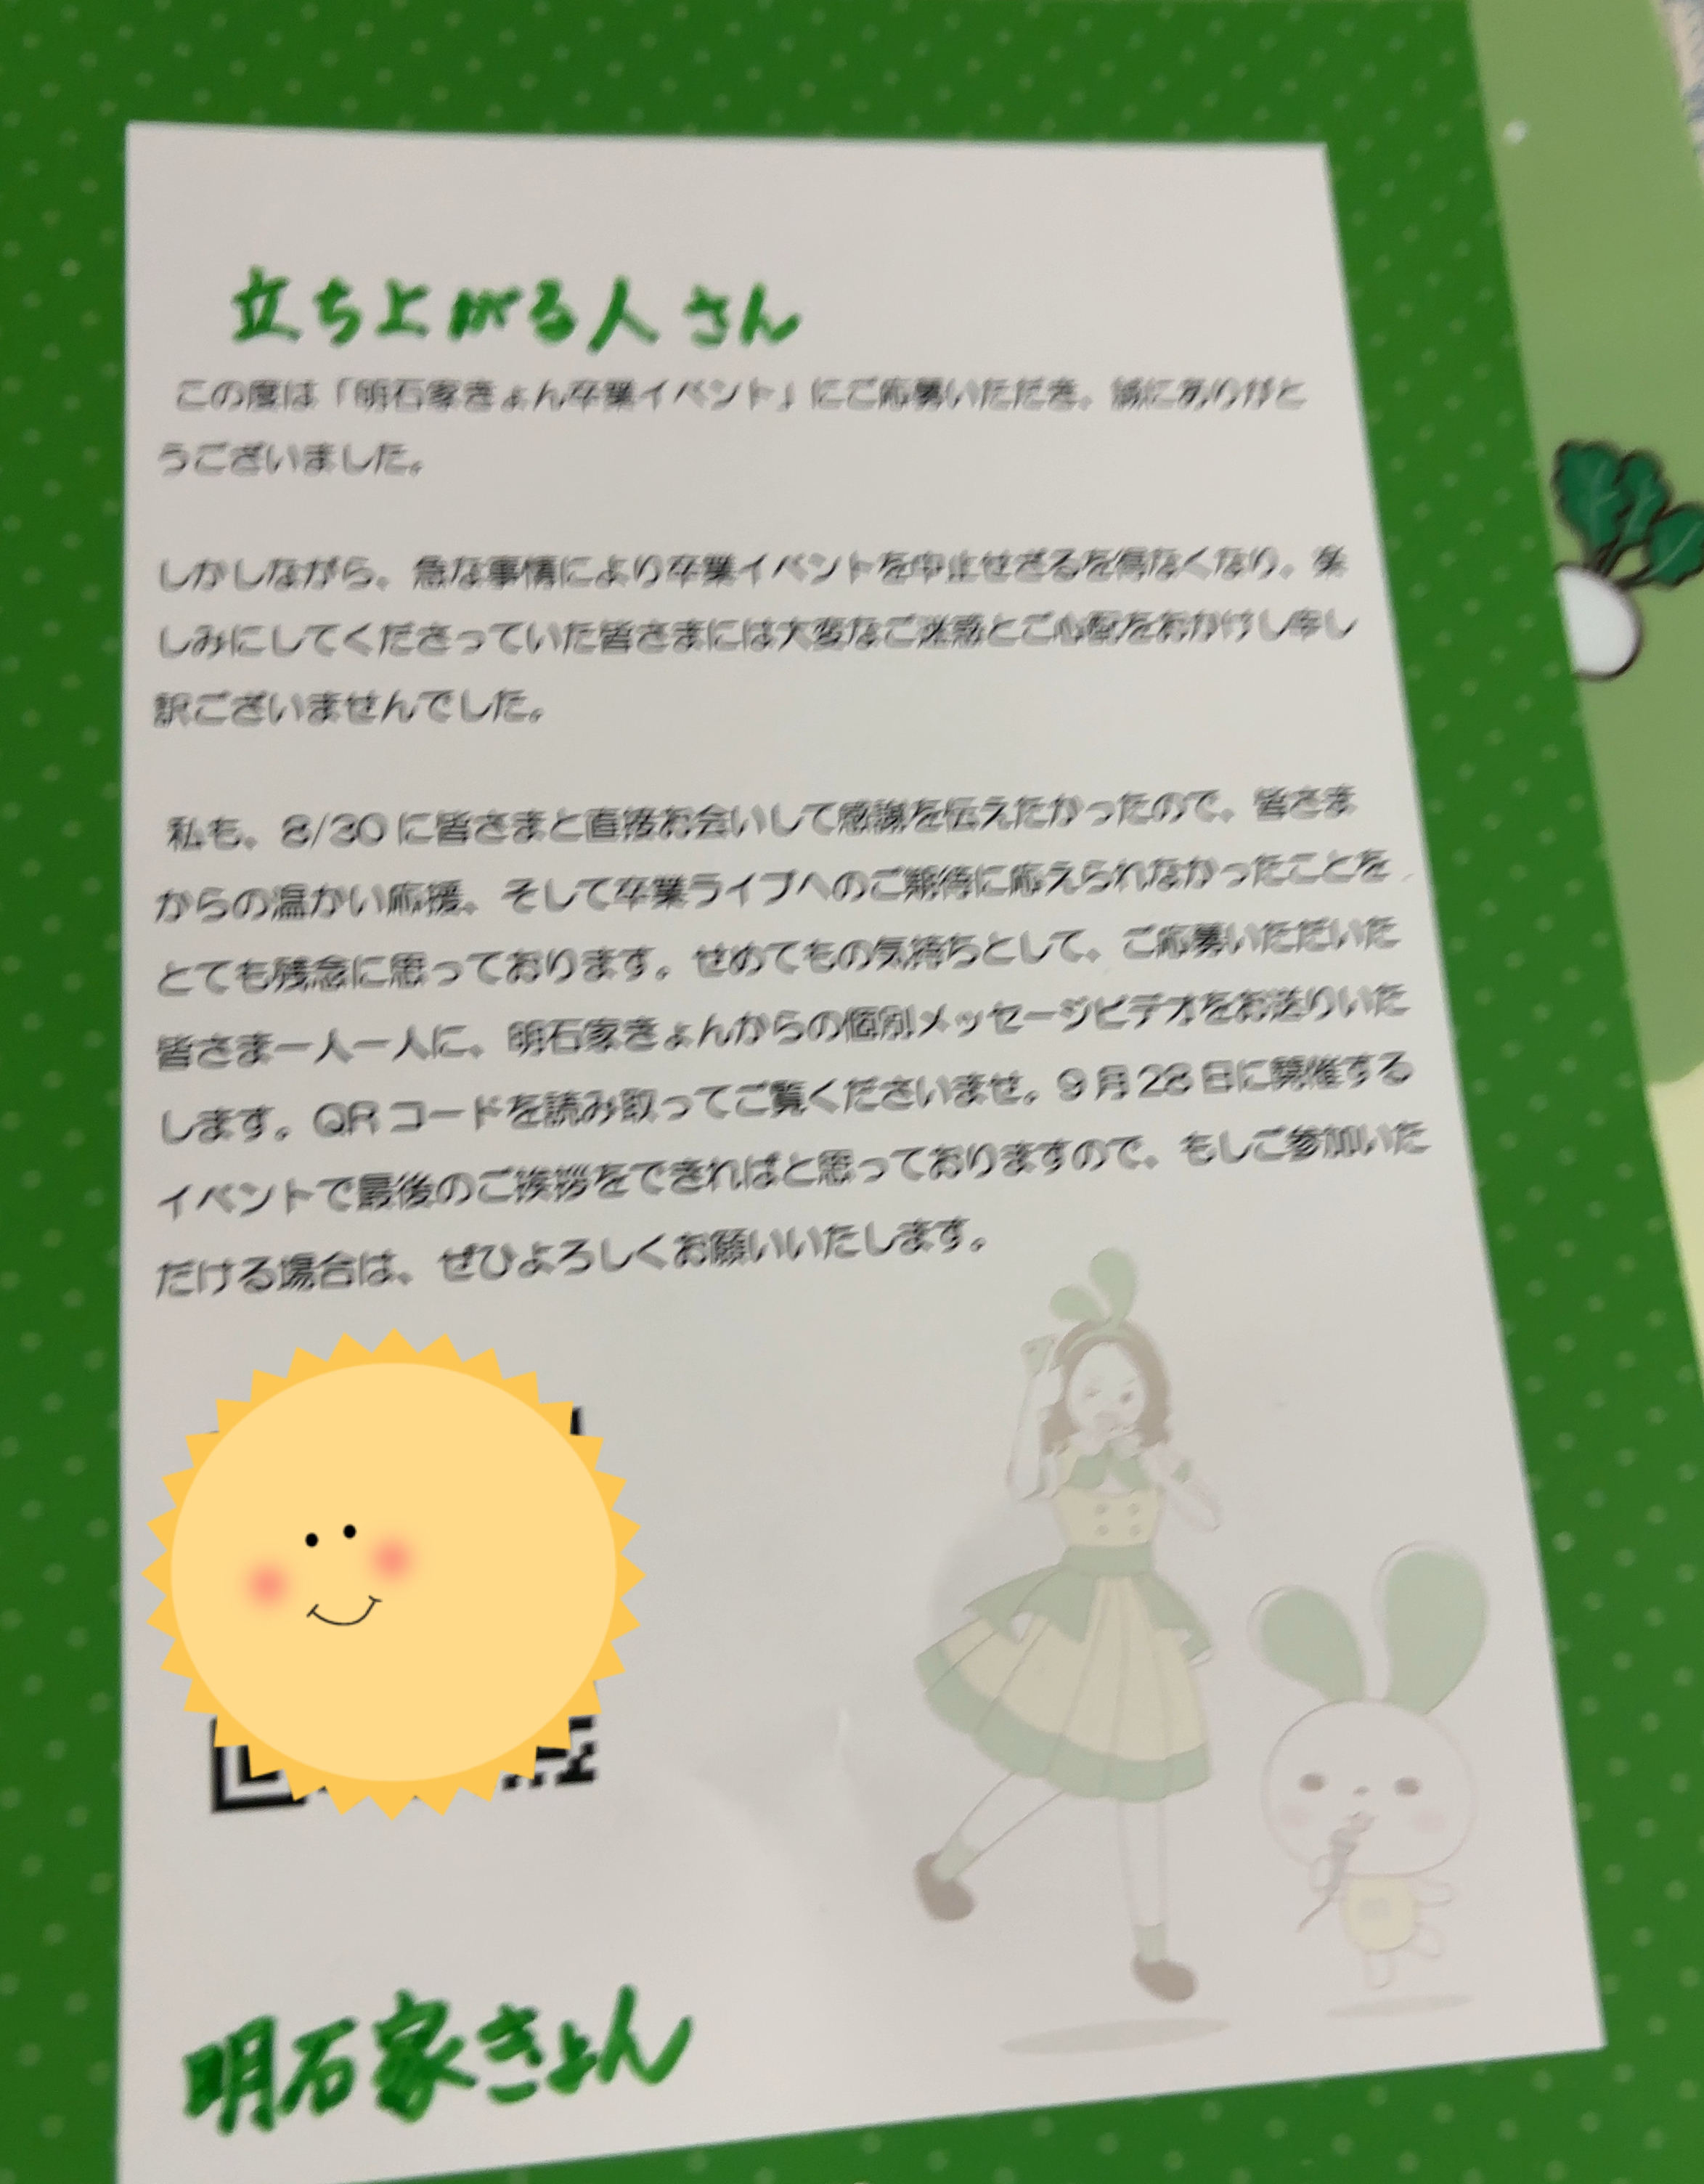 立ち上がる人さん
この度は「明石家きょん卒業イベント」にご応募いただき、誠にありがと
うございました。
しかしながら、急な事情により卒業イベントを中止せざるを得なくなり、楽
しみにしてくださっていた皆さまには大変なご迷惑とご心配をおかけし申し
訳ございませんでした。
私も、8/30 に皆さまと直接お会いして感謝を伝えたかったので、皆さま
からの温かい応援、そして卒業ライブへのご期待に応えられなかったことを
とても残念に思っております。せめてもの気持ちとして、ご応募いただいた
皆さま一人一人に、明石家きょんからの個別メッセージビデオをお送りいた
します。QR コードを読み取ってご覧くださいませ。9 月 28 日に開催する
イベントで最後のご挨拶をできればと思っておりますので、もしご参加いた
だける場合は、ぜひよろしくお願いいたします。
明石家きょん